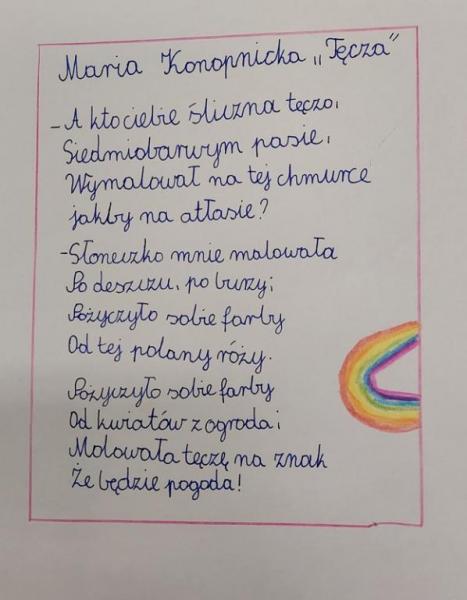 Maria Konopnicka „Tęcza”
- A kto ciebie śliczna tęczo,
Siedmiobarwym pasie,
Wymalował na tej chmurce
jakby na atłasie?
- Słoneczko mnie malowała
Po deszczu, po burzy;
Pożyczyło sobie farby
Od tej polany róży.
Pożyczyło sobie farby
Od kwiatów z ogroda;
Malowała tęczę na znak
Że będzie pogoda!